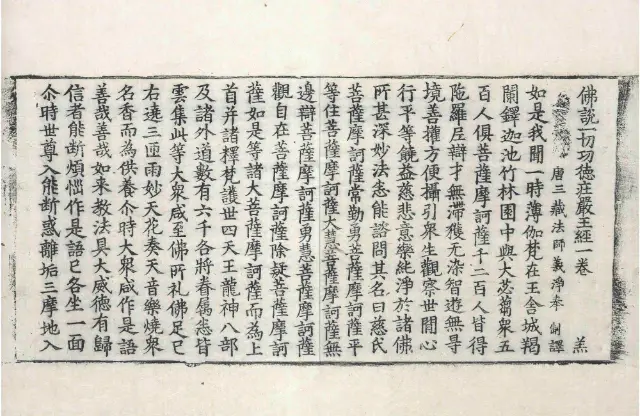 佛說一切功德庄嚴王經一卷
唐三藏法師義淨奉 制譯 羔
如是我聞一時薄伽梵在王舍城羯
闌鐸迦池竹林園中與大苾蒭衆五
百人俱菩薩摩訶薩千二百人皆得
陁羅尼辯才無滯獲無染智遊無㝵
境善權方便攝引衆生觀察世間心
行平等饒益慈悲意樂純淨於諸佛
所甚深妙法悉能諮問其名曰慈氏
菩薩摩訶薩常勤勇菩薩摩訶薩平
等住菩薩摩訶薩大慧菩薩摩訶薩無
邊辯菩薩摩訶薩勇慧菩薩摩訶薩
觀自在菩薩摩訶薩除疑菩薩摩訶
薩如是等諸大菩薩摩訶薩而為上
首并諸釋梵護世四天王龍神八部
及諸外道數有六千各將眷屬悉皆
雲集此等大衆咸至佛所礼佛足已
右遶三匝雨妙天花奏天音樂燒衆
名香而為供養尒時大衆咸作是語
善哉善哉如来教法具大威德有歸
信者能斷煩惱作是語已各坐一面
尒時世尊入能斷惑離垢三摩地入